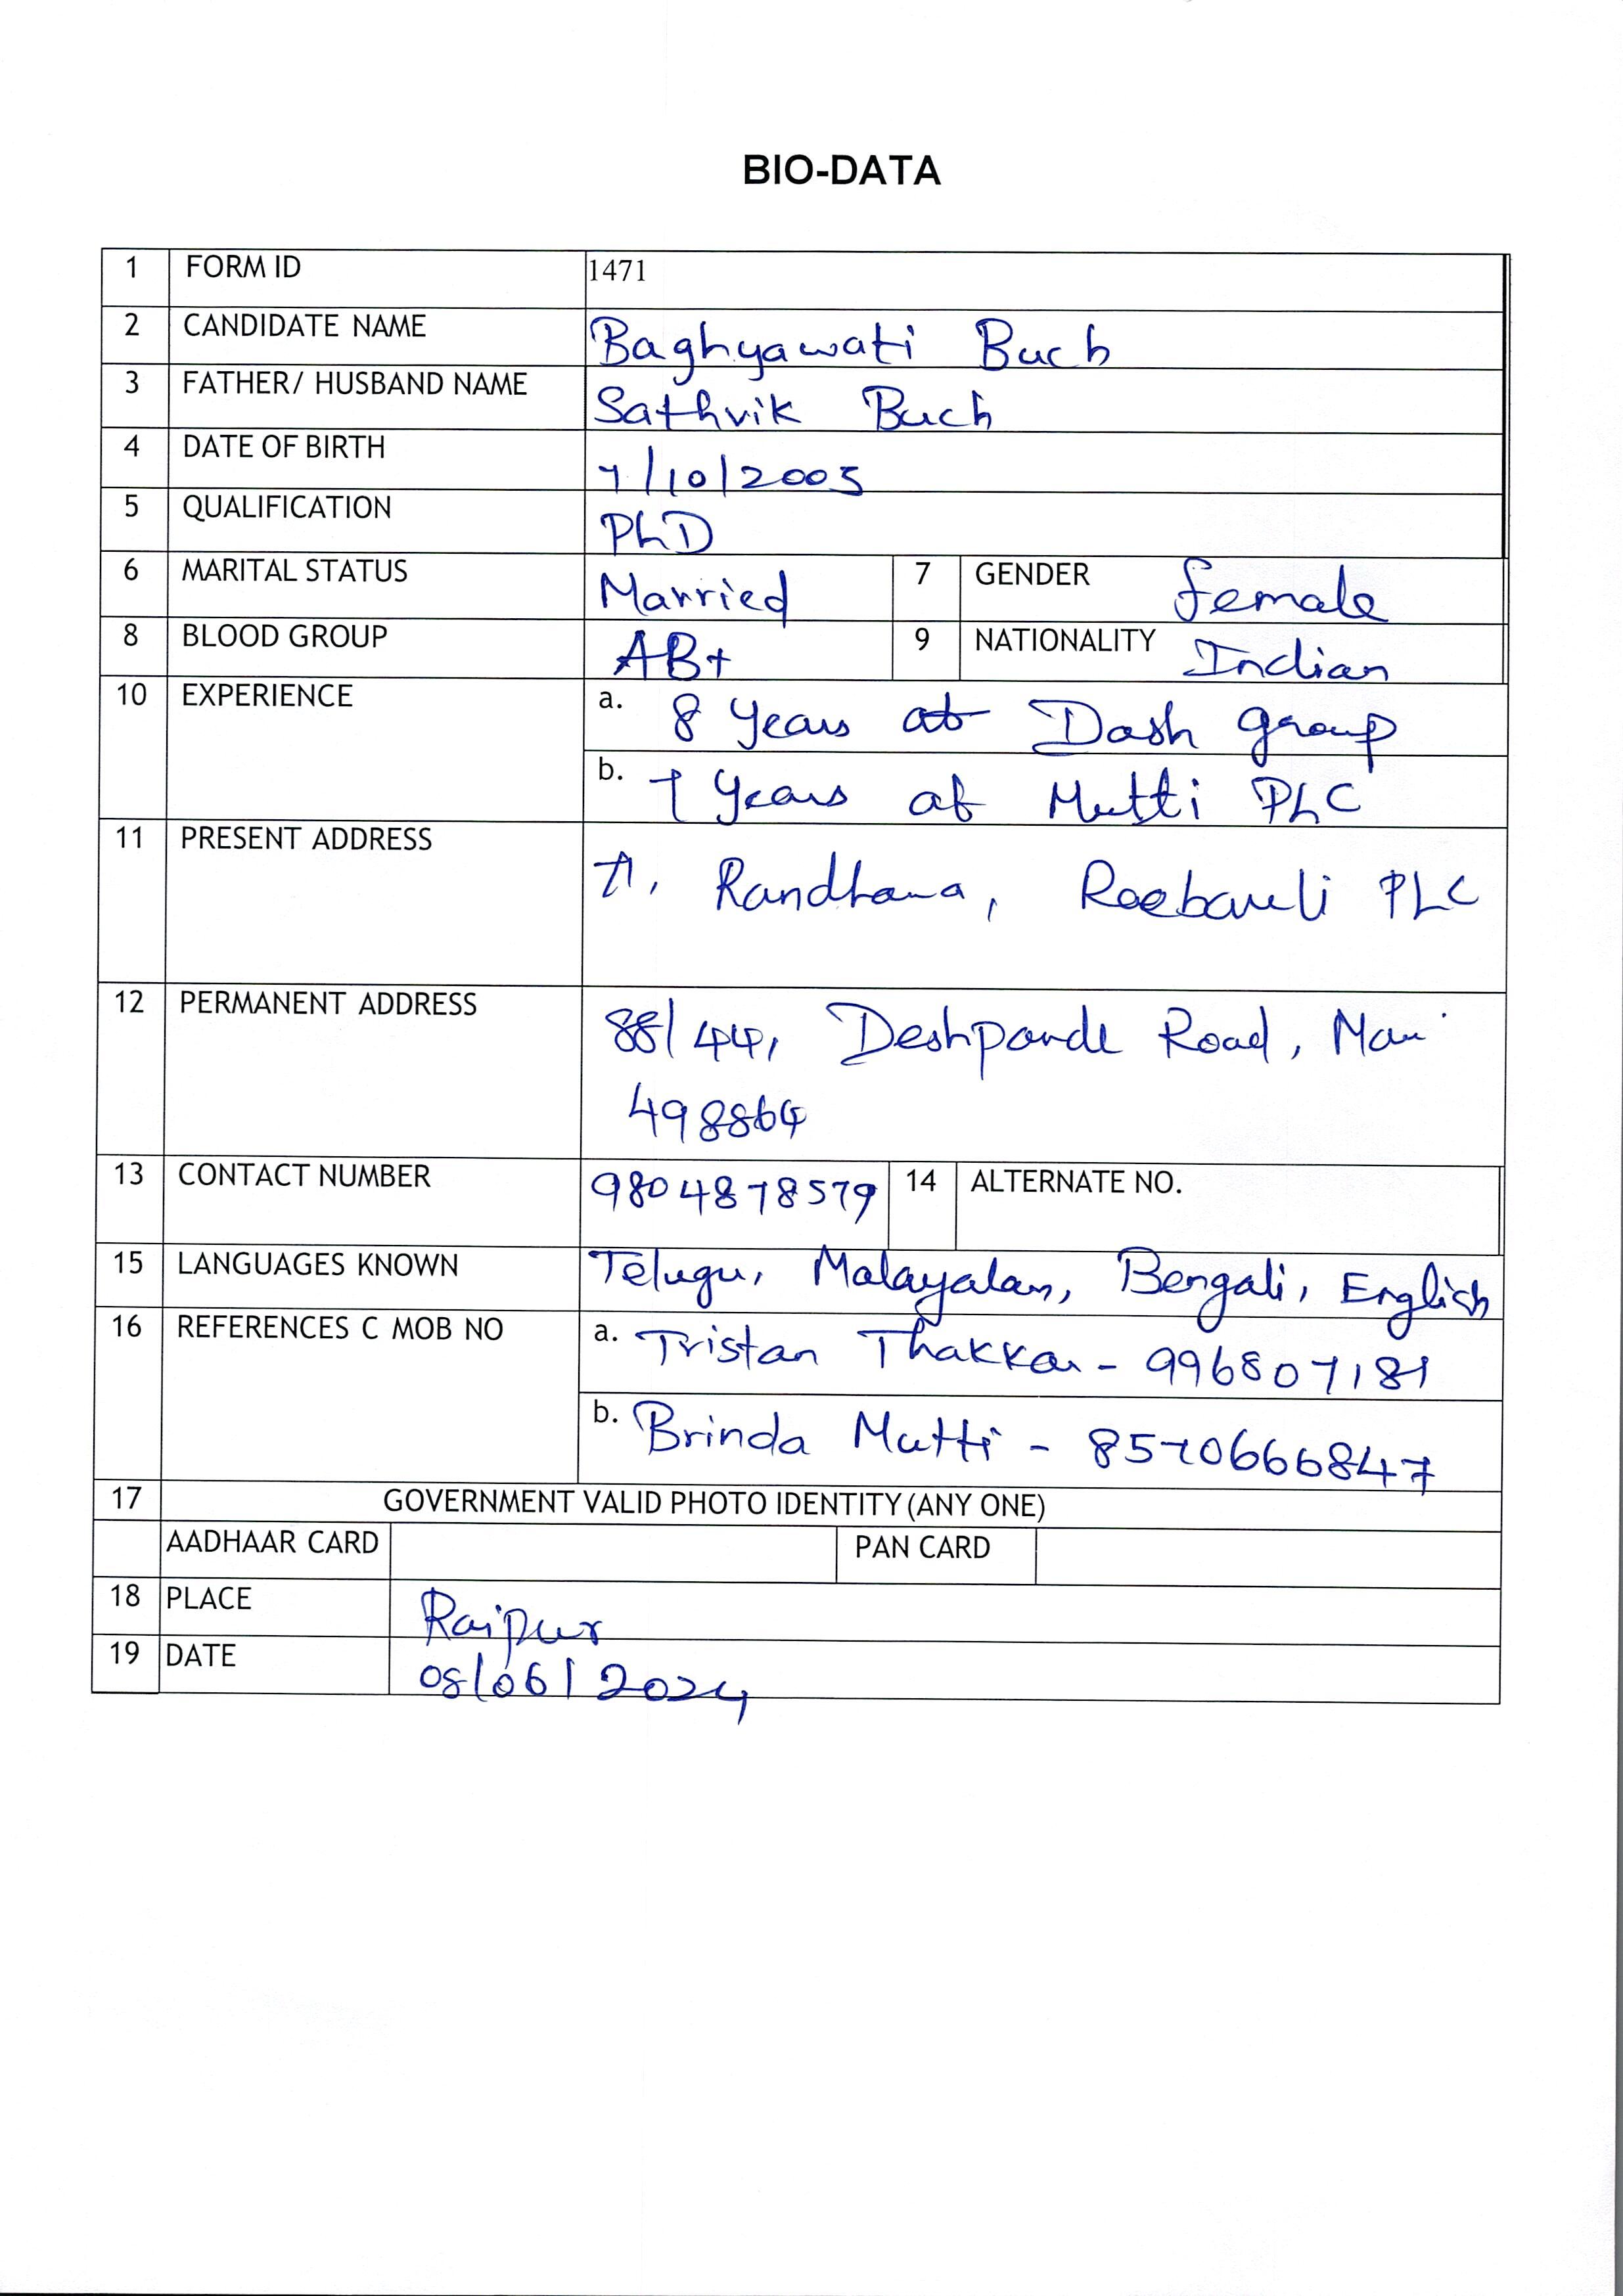 BIO-DATA
1 FORM ID 1471
2 CANDIDATE NAME Baghyawati Buch
3 FATHER/ HUSBAND NAME Sathvik Buch
4 DATE OF BIRTH 7/10/2005
5 QUALIFICATION PhD
6 MARITAL STATUS Married 7 GENDER female
8 BLOOD GROUP AB+ 9 NATIONALITY Indian
10 EXPERIENCE a. 8 Years at Dash group
b. 7 Years at Mutti PLC
11 PRESENT ADDRESS 71, Randhawa, Raebareli PLC
12 PERMANENT ADDRESS 88/44, Deshpande Road, Mau
498864
13 CONTACT NUMBER 9804878579 14 ALTERNATE NO.
15 LANGUAGES KNOWN Telugu, Malayalam, Bengali, English
16 REFERENCES C MOB NO a. Tristan Thakkar - 996807181
b. Brinda Mutti - 8570666847
17 GOVERNMENT VALID PHOTO IDENTITY (ANY ONE)
AADHAAR CARD PAN CARD
18 PLACE Raipur
19 DATE 08/06/2024